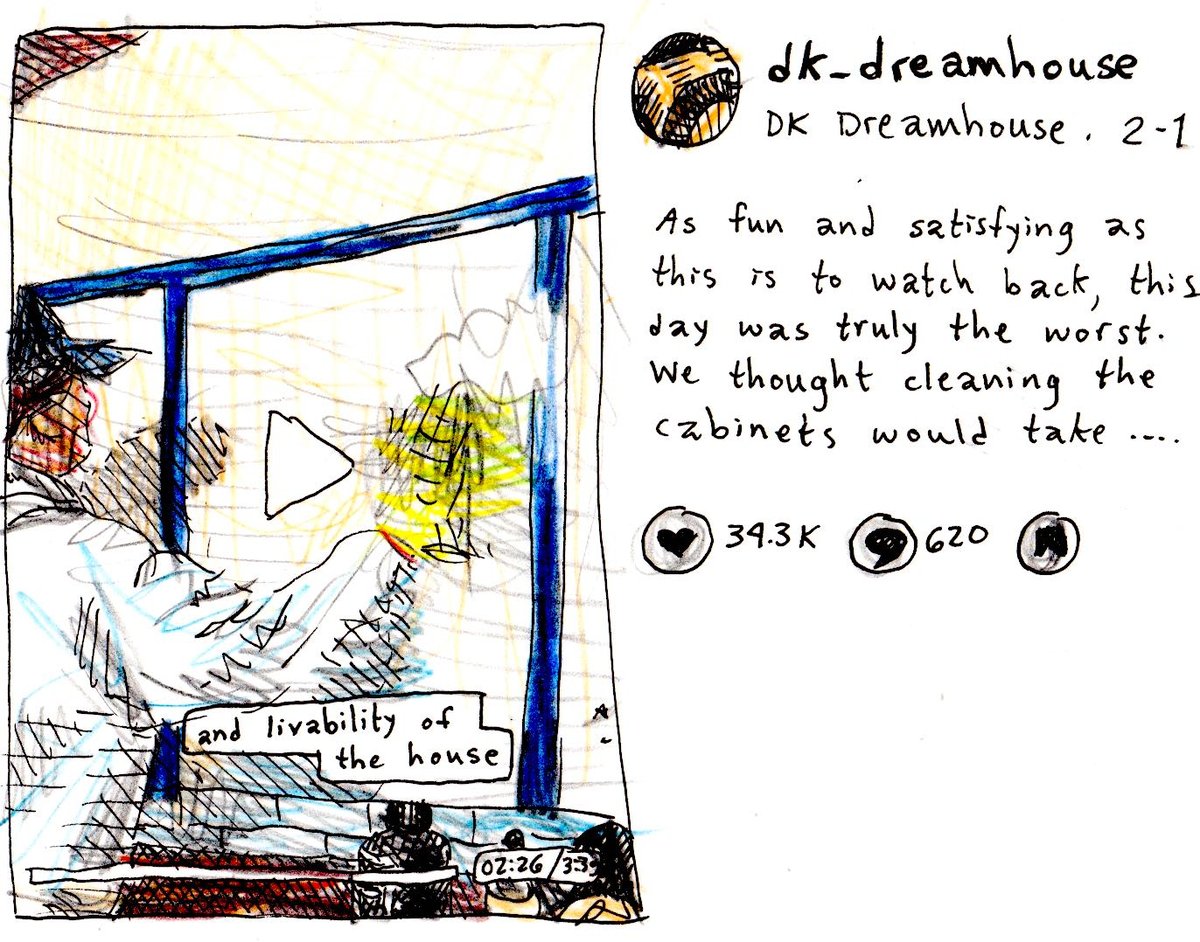 dk_dreamhouse
DK Dreamhouse . 2-1
As fun and satisfying as
this is to watch back, this
day was truly the worst.
We thought cleaning the
cabinets would take ....
34.3K
620
and livability of
the house
02:26/3:39